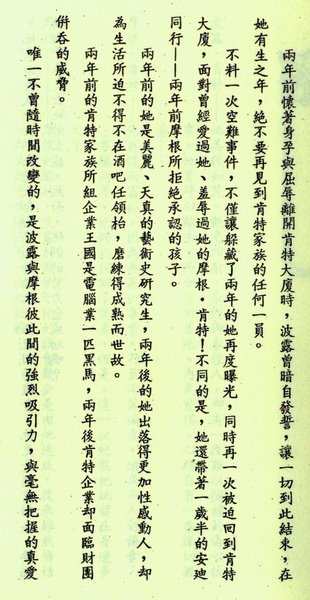 兩年前懷著身孕與屈辱離開肯特大廈時，波露曾暗自發誓，讓一切到此結束，在
她有生之年，絕不要再見到肯特家族的任何一員。
不料一次空難事件，不僅讓躲藏了兩年的她再度曝光，同時再一次被迫回到肯特
大廈，面對曾經愛過她、羞辱過她的摩根·肯特！不同的是，她還帶著一歲半的安迪
同行——兩年前摩根所拒絕承認的孩子。
兩年前的她是美麗、天真的藝術史研究生，兩年後的她出落得更加性感動人，却
為生活所迫不得不在酒吧任領枱，磨練得成熟而世故。
兩年前的肯特家族所組企業王國是電腦業一匹黑馬，兩年後肯特企業却面臨財團
倂吞的威脅。
唯一不曾隨時間改變的，是波露與摩根彼此間的強烈吸引力，與毫無把握的真愛